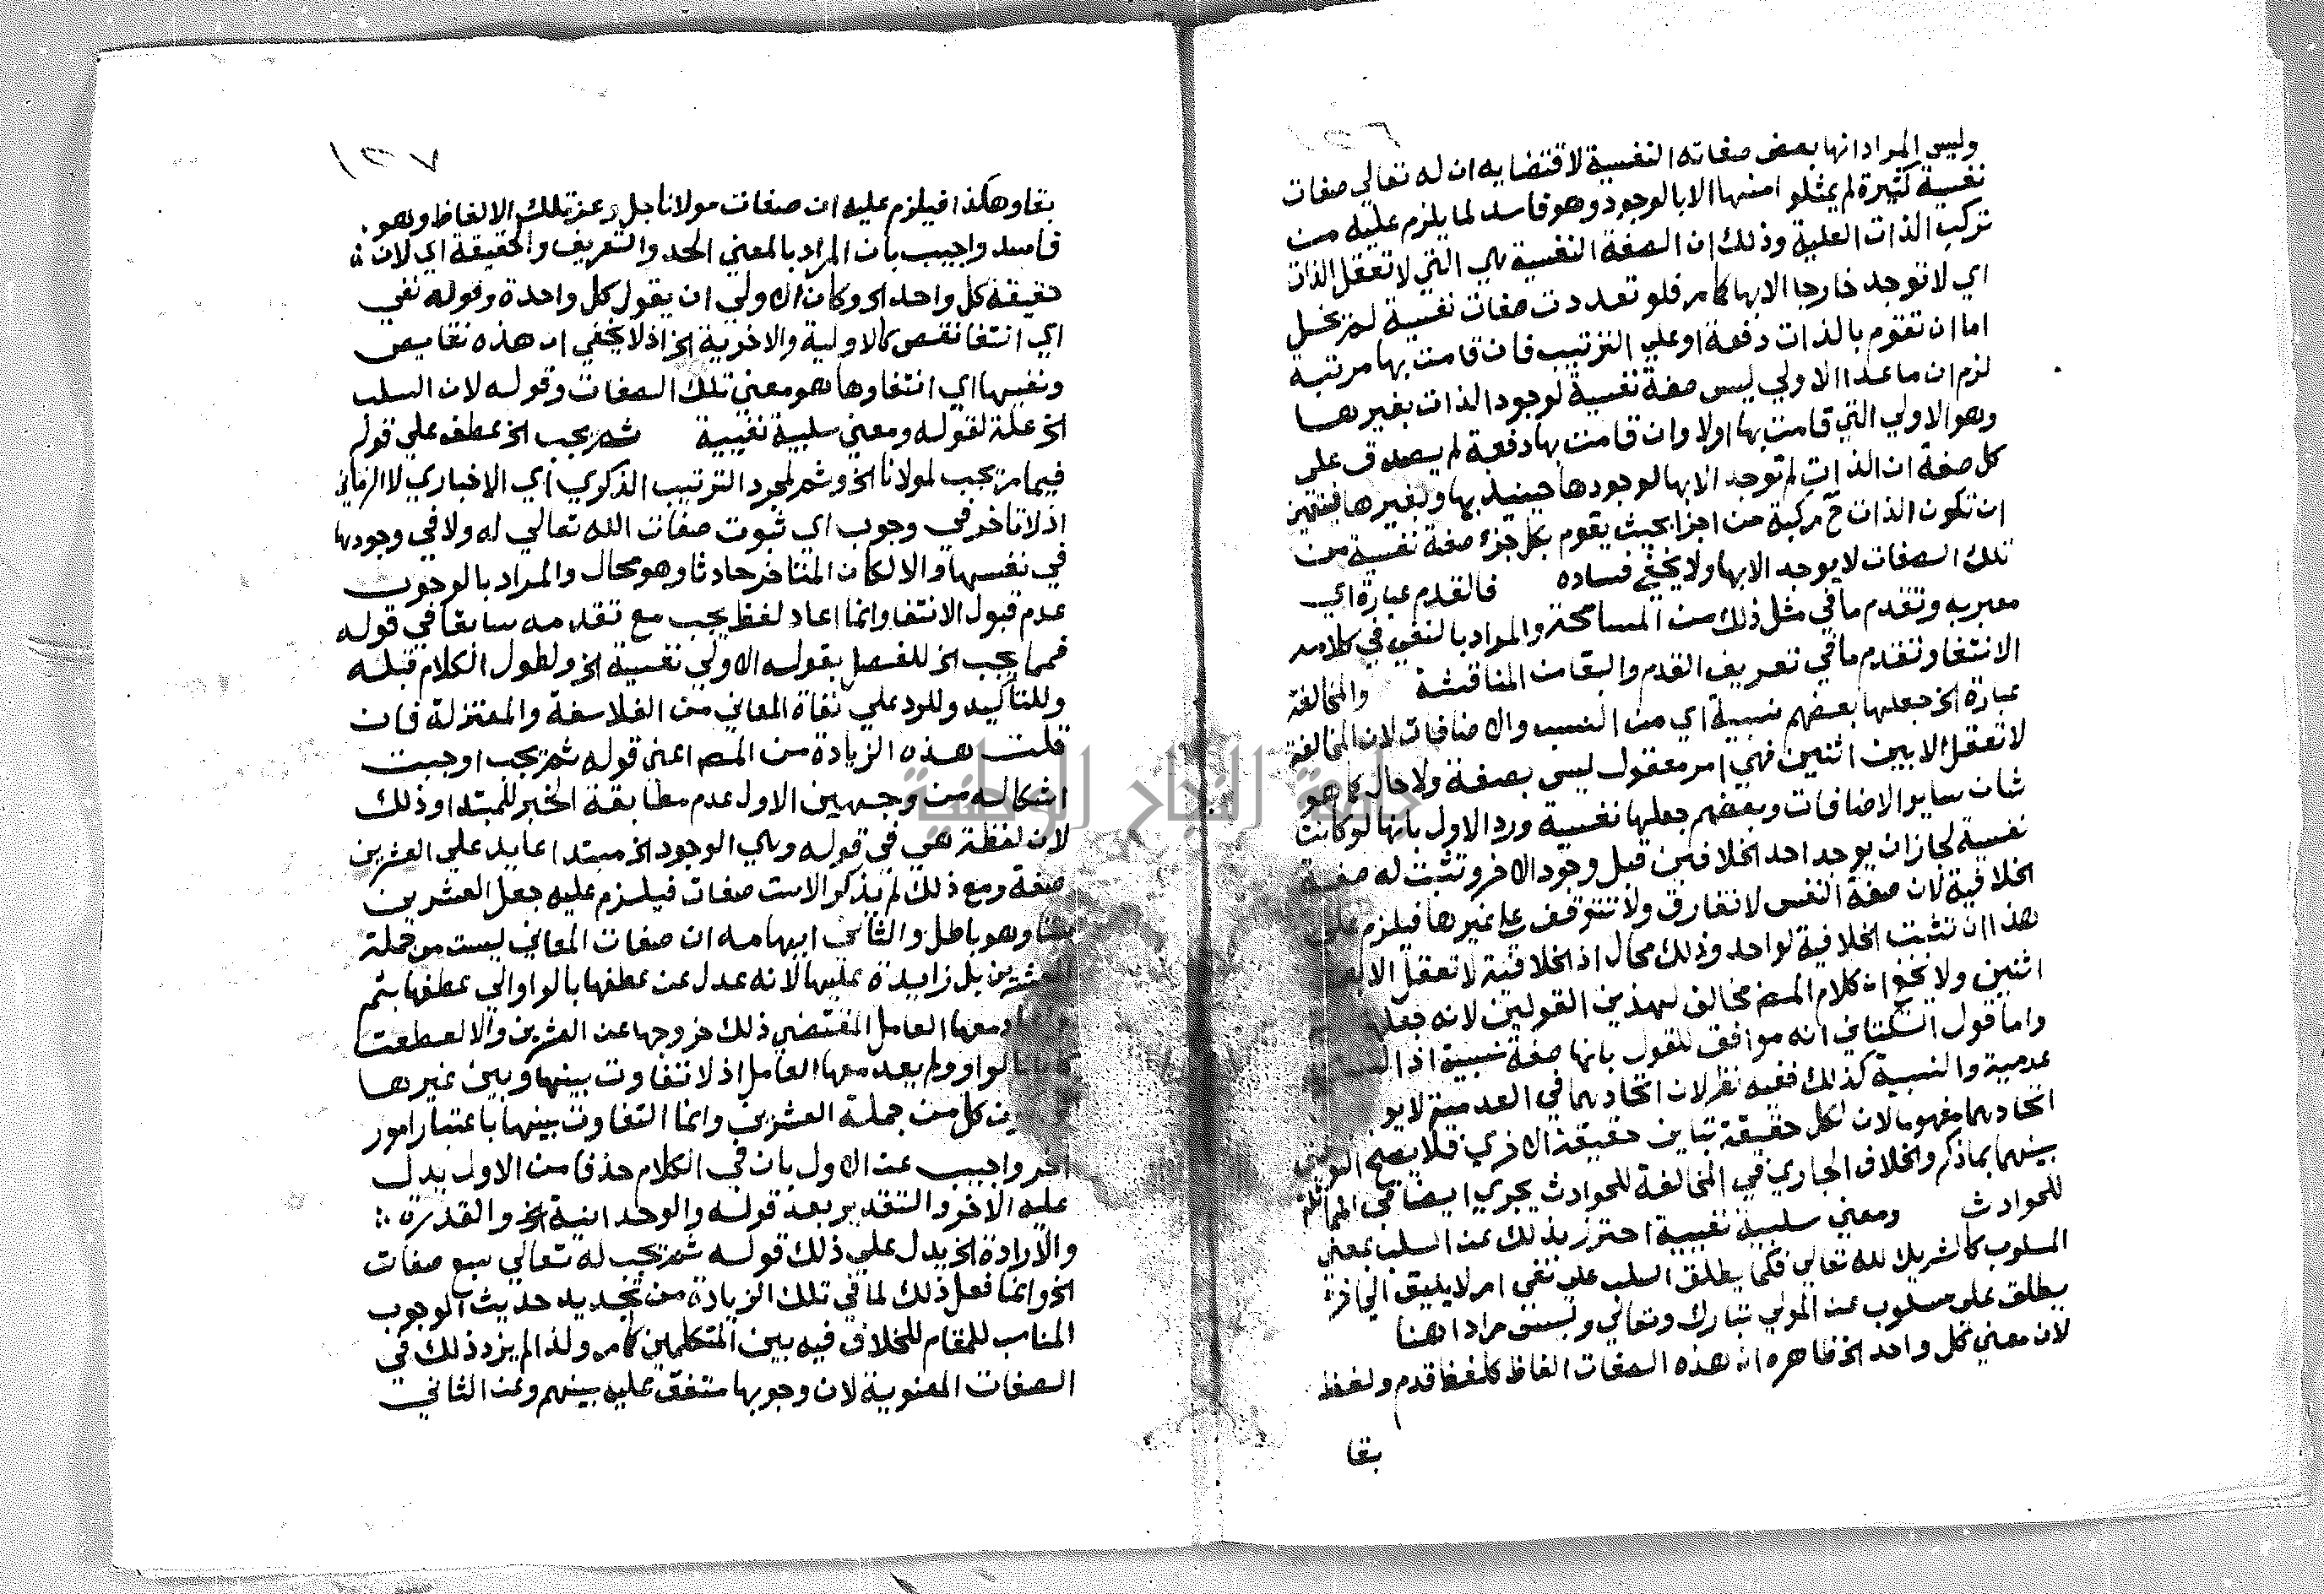 وليس المراد انها بعض صفاته النفسية لاقتضايه ان له تعالي صفات
نفسية كثيرة لم يمثلوا منها الا بالوجود وهو فاسد لما يلزم عليه من
تركب الذات العلية وذلك ان الصفة النفسية هي التي لا تعقل الذات
اي لا توجد خارجا الا بها كما مر فلو تعددت صفات نفسية لم تخل
اما ان تقوم بالذات دفعة او علي الترتيب فان قامت بها مرتبة
لزم ان ما عدا الاولي ليس صفة نفسية لوجود الذات بغيرها
وهو الاولي التي قامت بها اولا وان قامت بها دفعة لم يصدق علي
كل صفة ان الذات لم توجد الا بها لوجودها حينيذ بها وبغيرها فيتعين
ان تكون الذات ح مركبة من اجزا بحيث يقوم بكل جزء صفة نفسية من
تلك الصفات لا يوجد الا بها ولا يخفي فساده فالقدم عبارة اي
معبر به وتقدم ما في مثل ذلك من المسامحة والمراد بالنفي في كلامه
الانتفا وتقدم ما في تعريف القدم والبقا من المناقشة والمخالفة
عبارة الخ جعلها بعضهم نسبية اي من النسب والاضافات لان المخالفة
لا تعقل الا بين اثنين فهي امر معقول ليس بصفة ولا حال كما هو
شان ساير الاضافات وبعضهم جعلها نفسية ورد الاول بانها لو كانت
نفسية لجاز ان يوجد احد الخلافين قبل وجود الاخر وتثبت له صفة
الخلافية لان صفة النفس لا تفارق ولا تتوقف علي غيرها فيلزم علي
هذا ان تثبت الخلافية لواحد وذلك محال اذ الخلافية لا تعقل الا بين
اثنين ولا يخفي ان كلام المص مخالف لهذين القولين لانه جعلها
واما قول السكتاني انه موافق للقول بانها صفة نسبية اذ
عدمية والنسبية كذلك ففيه نظر لان اتحادهما في العدمية لا
اتحادهما مفهوما لان لكل حقيقة تباين حقيقة الاخري فلا يصح
بينهما بما ذكر والخلاف الجاري في المخالفة للحوادث يجري ايضا في المماثلة
للحوادث ومعني سلبية نفيية احترز بذلك عن السلب بمعني
المسلوب كالشريك لله تعالي فكما يطلق السلب علي نفي امر لا يليق الي اخره
يطلق علي مسلوب عن المولي تبارك وتعالي وليس مرادا هنا
لان معني كل واحد الخ ظاهره ان هذه الصفات الفاظ كلفظ قدم ولفظ
بقا
١٥٧
بقا وهكذا فيلزم عليه ان صفات مولانا جل وعز تلك الالفاظ وهو
فاسد واجيب بان المراد بالمعني الحد والتعريف والحقيقة اي لان
حقيقة كل واحد الخ وكان الاولي ان يقول كل واحدة وقوله نفي
اي انتفا نقص كالاولية والاخرية الخ اذ لا يخفي ان هذه نقايص
ونفيها اي انتفاوها هو معني تلك الصفات وقوله لان السلب
الخ علة لقوله ومعني سلبية نفيية ثم يجب الخ عطف علي قوله
فيما مر يجب لمولانا الخ وثم لمجرد الترتيب الذكري اي الاخباري لا الزماني
اذ لا تاخر في وجوب اي ثبوت صفات الله تعالي له ولا في وجودها
في نفسها والا لكان المتاخر حادثا وهو محال والمراد بالوجوب
عدم قبول الانتفا وانما اعاد لفظ يجب مع تقدمه سابقا في قوله
فمما يجب الخ للفصل بقوله الاولي نفسية الخ ولطول الكلام قبله
وللتاكيد وللرد علي نفاة المعاني من الفلاسفة والمعتزلة فان
قلت هذه الزيادة من المص اعني قوله ثم يجب اوجبت
اشكاله من وجهين الاول عدم مطابقة الخبر للمبتدا وذلك
لان لفظة هي في قوله وهي الوجود الخ مبتدا عايد علي العشرين
صفة ومع ذلك لم يذكر الا ست صفات فيلزم عليه جعل العشرين
ستا وهو باطل والثاني ايهامه ان صفات المعاني ليست من جملة
العشرين بل زايدة عليها لانه عدل عن عطفها بالواو الي عطفها بثم
معها العامل المقتضي ذلك خروجها عن العشرين والا لعطفت
بالواو ولم يعد معها العامل اذ لا تفاوت بينها وبين غيرها
كل من جملة العشرين وانما التفاوت بينها باعتبار امور
اخر واجيب عن الاول بان في الكلام حذفا من الاول يدل
عليه الاخر والتقدير بعد قوله والوحدانية الخ والقدرة
والارادة الخ يدل علي ذلك قوله ثم تجب له تعالي سبع صفات
الخ وانما فعل ذلك لما في تلك الزيادة من تجديد حديث الوجوب
المناسب للمقام للخلاف فيه بين المتكلمين كما مر ولذا لم يزد ذلك في
الصفات المعنوية لان وجوبها متفق عليه بينهم وعن الثاني
جامعة النجاح الوطنية